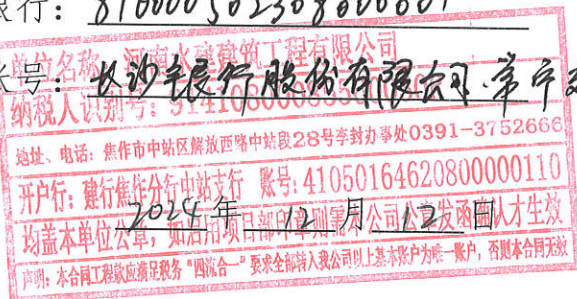 银行: 8100005023080000001
单位名称: 河南水建建筑工程有限公司
账号: 长沙银行股份有限公司常宁支
纳税人识别号:
地址、电话: 焦作市中站区解放西路中站段28号李封办事处0391-3752666
开户行: 建行焦作分行中站支行 账号: 41050164620800000110
2024年 12月 12日
均盖本单位公章, 如启用项目部印章则需公司公章发函认才生效
声明: 本合同工程款应满足税务“四流合一”要求全部转入我公司以上基本账户为唯一账户, 否则本合同无效